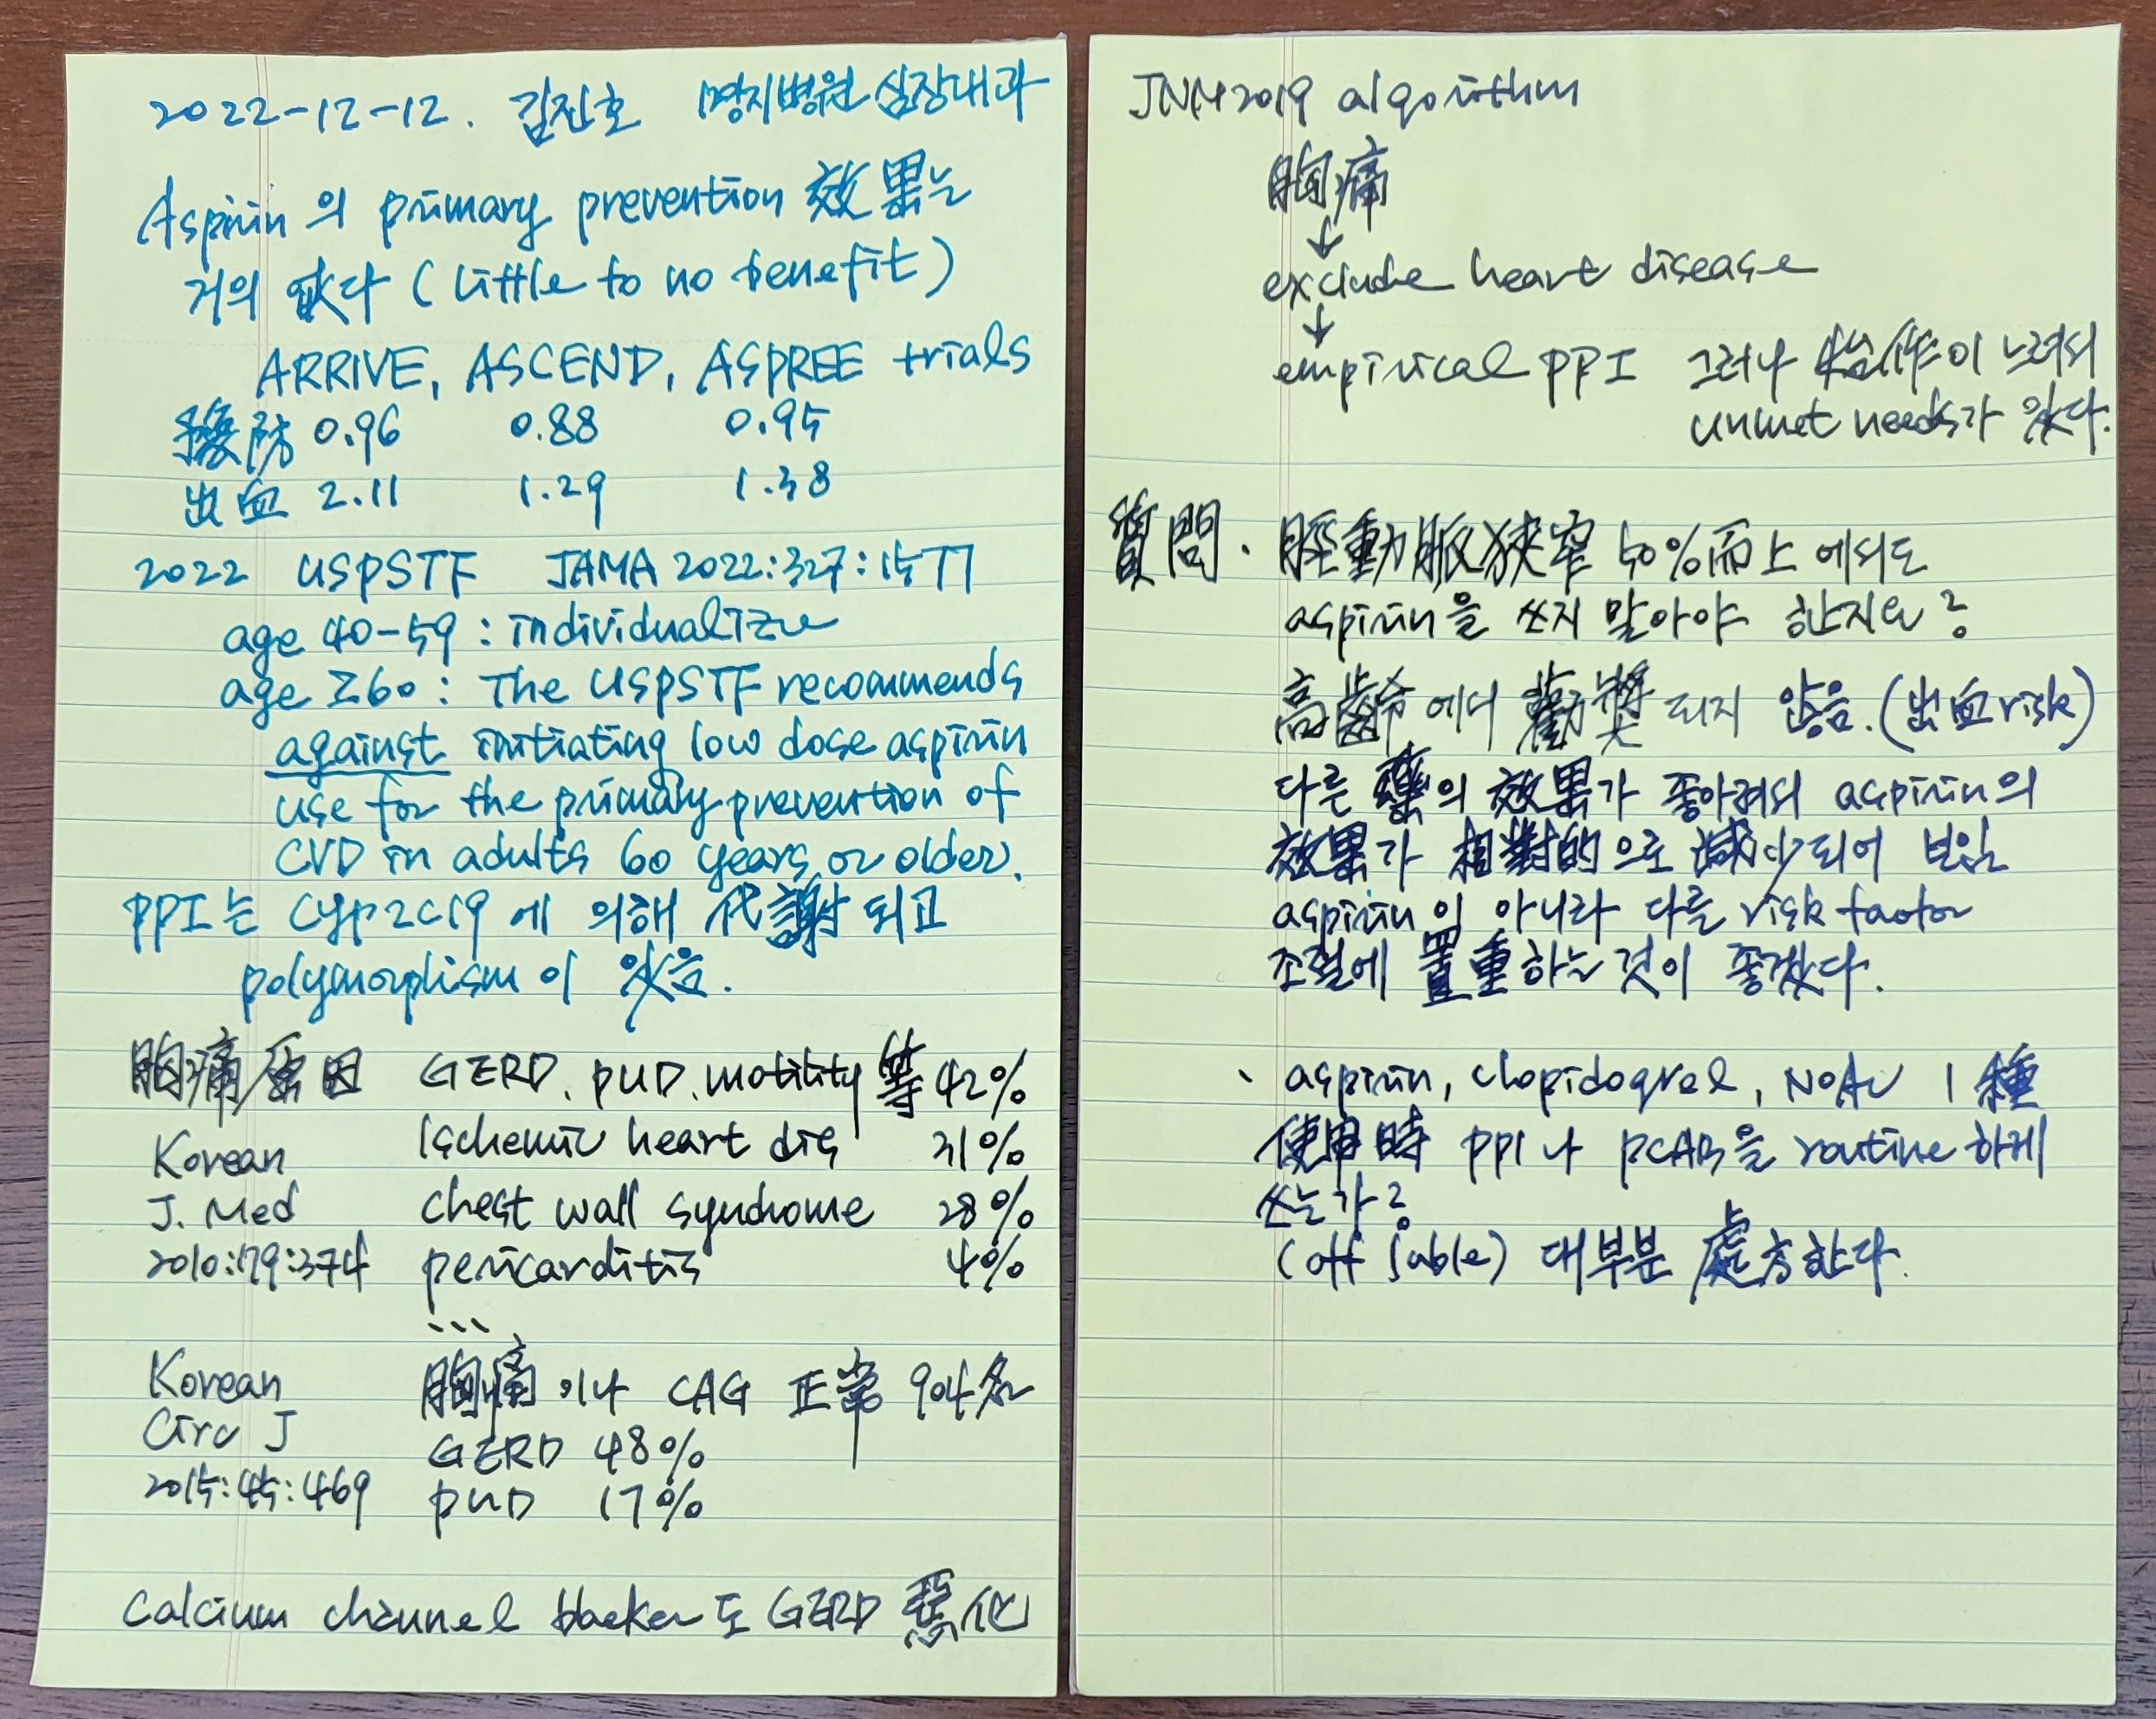 2022-12-12. 김진호 명지병원 심장내과
Aspirin의 primary prevention 效果는
거의 없다 (little to no benefit)
ARRIVE, ASCEND, ASPREE trials
豫防 0.96 0.88 0.95
出血 2.11 1.29 1.38
2022 USPSTF JAMA 2022:327:1577
age 40-59 : individualize
age ≥60 : The USPSTF recommends
against initiating low dose aspirin
use for the primary prevention of
CVD in adults 60 years or older.
PPI는 CYP2C19에 의해 代謝되고
polymorphism이 있음.
胸痛原因 GERD, PUD, motility 等 42%
Korean Ischemic heart dis 31%
J. Med chest wall syndrome 28%
2010:79:374 pericarditis 4%
...
Korean 胸痛이나 CAG 正常 904名
Circ J GERD 48%
2015:45:469 PUD 17%
Calcium channel blocker도 GERD 惡化
JNM 2019 algorithm
胸痛
↓
exclude heart disease
↓
empirical PPI 그러나 始作이 느려서
unmet needs가 있다.
質問. 脛動脈狹窄 50%而上에서도
aspirin을 쓰지 말아야 한지요?
高齡에더 勸奬되지 않음. (出血 risk)
다른 藥의 效果가 좋아져서 aspirin의
效果가 相對的으로 減少되어 보임
aspirin이 아니라 다른 risk factor
조절에 置重하는 것이 좋겠다.
、aspirin, clopidogrel, NOAC 1種
使用時 PPI나 PCAB을 routine하게
쓰는가?
(off lable) 대부분 處方한다.